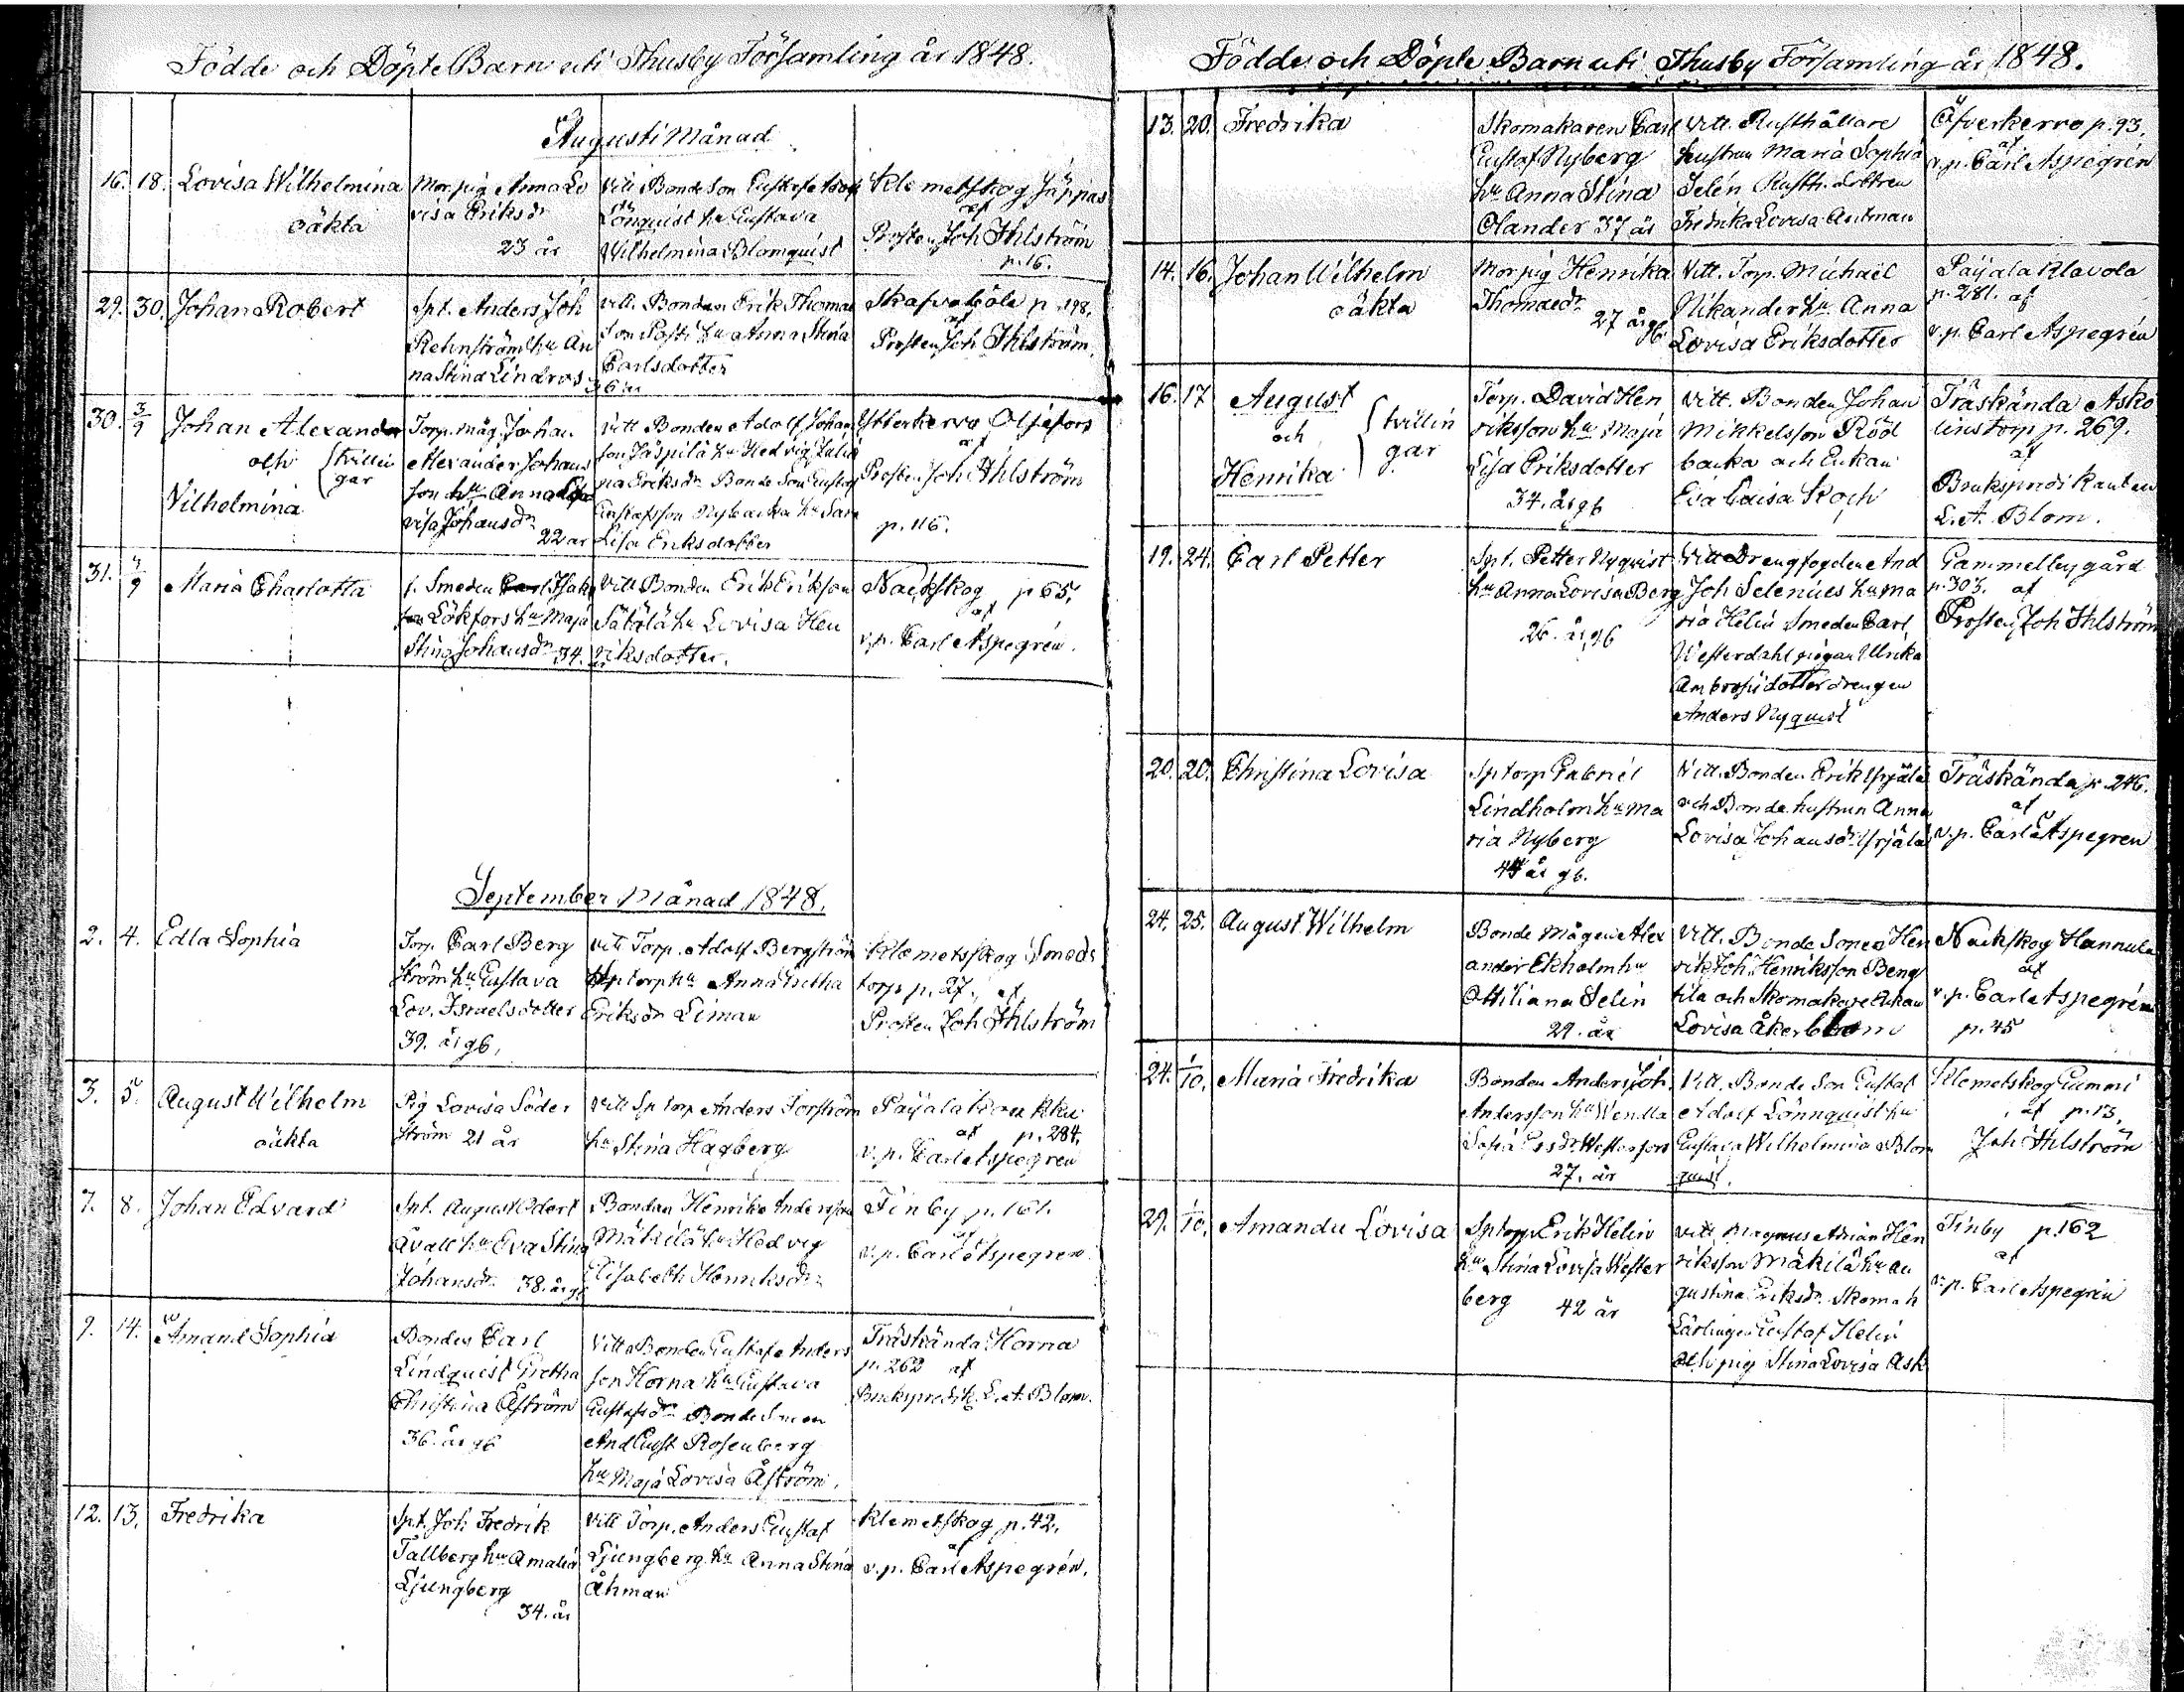 Födde och Döpte Barn uti Thusby Församling år 1848.
Augusti Månad
16. 18. Lovisa Wilhelmina
oäkta
Mor pig Anna Lo
visa Eriksdr
23 år
Vitt Bonde Son Gustaf Adolf
Lönquist hu Gustava
Wilhelmina Blomquist
Klemetskog Jäppas
af
Prosten Joh Ihlström
p. 16.
29. 30. Johan Robert
Spt. Anders Joh
Rehnström hu An
na Stina Lindros
36 år
Vitt. Bonden Erik Thomas
Son Posti hu Anna Stina
Carlsdotter
Skafvaböle p. 198.
af
Prosten Joh Ihlström.
30. 3/9 Johan Alexander
och {tvillin
gar
Vilhelmina
Torp. måg. Johan
Alexander Johans
son hu Anna Lo
visa Johansdr
22 år
Vitt Bonden Adolf Johan
son Jäspilä hu Hedvig Juliá
na Eriksdr Bonde Son Gustaf
Gustafsson Nybacka hu Sara
Lisa Eriksdotter
Ytterkervo Oljefors
af
Prosten Joh Ihlström
p. 116.
31. 4/9 Maria Charlotta
f. Smeden Isaks
son Lökfors hu Maja
Stina Johansdr 34. år
Vitt Bonden Erik Erikson
Sätälä hu Lovisa Hen
riksdotter.
Nackskog p 65.
af
v. p. Carl Aspegrén.
September Månad 1848.
2. 4. Edla Sophia
Torp. Carl Berg
ström hu Gustava
Lov. Israelsdotter
39. år gb.
Vitt Torp. Adolf Bergström
Sptorp hu Anna Gretha
Eriksdr Liman
Klemetsskog Smeds
torp p. 27. af
Prosten Joh Ihlström
3. 5. August Wilhelm
oäkta
Pig Lovisa Söder
ström 21 år
Vitt Sp torp Anders Forström
hu Stina Hagberg
Paijala
af p. 284.
v. p. Carl Aspegrén
7. 8. Johan Edvard
Spt. August Odert
Avall hu Eva Stina
Johansdr 38. år gb
Bonden Henrik Andersson
Mäkilä hu Hedvig
Elisabeth Henriksdr
Finby p. 161.
af
v. p. Carl Aspegren
9. 14. Amand Sophia
Bonden Carl
Lindquist Gretha
Christina Åström
36. år gb
Vitt Bonden Gustaf Anders
son Horna hu Gustava
Gustafsdr Bonde Sonen
And Gust Rosenberg
hu Maja Lovisa Åström.
Träskända Horna
p. 262 af
Brukspredik. L. A. Blom.
12. 13. Fredrika
Spt. Joh Fredrik
Tallberg hu Amalia
Ljungberg
34. år
Vitt Torp. Anders Gustaf
Ljungberg hu Anna Stina
Åhman
Klemetskog p. 42.
af
v. p. Carl Aspegrén.
Födde och Döpte Barn uti Thusby Församling år 1848.
13. 20. Fredrika
Skomakaren Carl
Gustaf Nyberg
hu Anna Stina
Olander 37 år
Vitt. Rusthållare
hustrun Maria Sophia
Selén Rusth. dottren
Fredrika Lovisa Autman
Öfverkervo p. 93.
af
v. p. Carl Aspegrén
14. 16. Johan Wilhelm
oäkta
Mor pig Henrika
Thomasdr
27 år gb
Vitt. Torp. Michaël
Nikander hu Anna
Lovisa Eriksdotter
Paijala Klavola
p. 281. af
v. p. Carl Aspegrén
16. 17 August
och {tvillin
gar
Henrika
Torp. David Hen
riksson hu Maja
Lisa Eriksdotter
34. år gb
Vitt. Bonden Johan
Mikkelsson Röd
backa och Enkan
Eva Caisa Koch
Träskända Asko
lins torp p. 269.
af
Brukspredikanten
L. A. Blom.
19. 24. Carl Petter
Spt. Petter Nyquist
hu Anna Lovisa Berg
26. år gb
Vitt Drengfogden And
Joh Selenius hu Ma
ria Helin Smeden Carl
Westerdahl pigan Ullrika
Ambrosidotter drengen
Anders Nyquist
Gammelby gård
p. 303. af
Prosten Joh Ihlström
20. 20. Christina Lovisa
Sptorp Gabriel
Lindholm hu Ma
ria Nyberg
44 år gb.
Vitt. Bonden Erik Yrjälä
och Bonde hustrun Anna
Lovisa Johansdr Yrjälä
Träskända p. 246.
af
v. p. Carl Aspegren
24. 25. August Wilhelm
Bonde Mågen Alex
ander Ekholm hu
Ottiliana Selin
29. år
Vitt. Bonde Sonen Hen
rik Joh Henriksson Beng
tila och Skomakare Enkan
Lovisa Åkerblom
Nackskog Hannula
af
v. p. Carl Aspegrén
p. 45
24. 1/10. Maria Fredrika
Bonden Anders Joh.
Andersson hu Wendla
Sofia Ersdr Westerfors
27. år
Vitt. Bonde Son Gustaf
Adolf Lönnquist hu
Gustava Wilhelmina Blom
quist.
Klemetskog Gammi
af p. 13.
Joh Ihlström
29. 1/10. Amanda Lovisa
Sptorp Erik Helin
hu Stina Lovisa Wester
berg 42 år
Vitt Magnus Adrian Hen
riksson Mäkilä hu Au
gustina Eriksdr Skomak
Lärlingen Gustaf Helin
och pig Stina Lovisa Ask
Finby p. 162
af
v. p. Carl Aspegrén